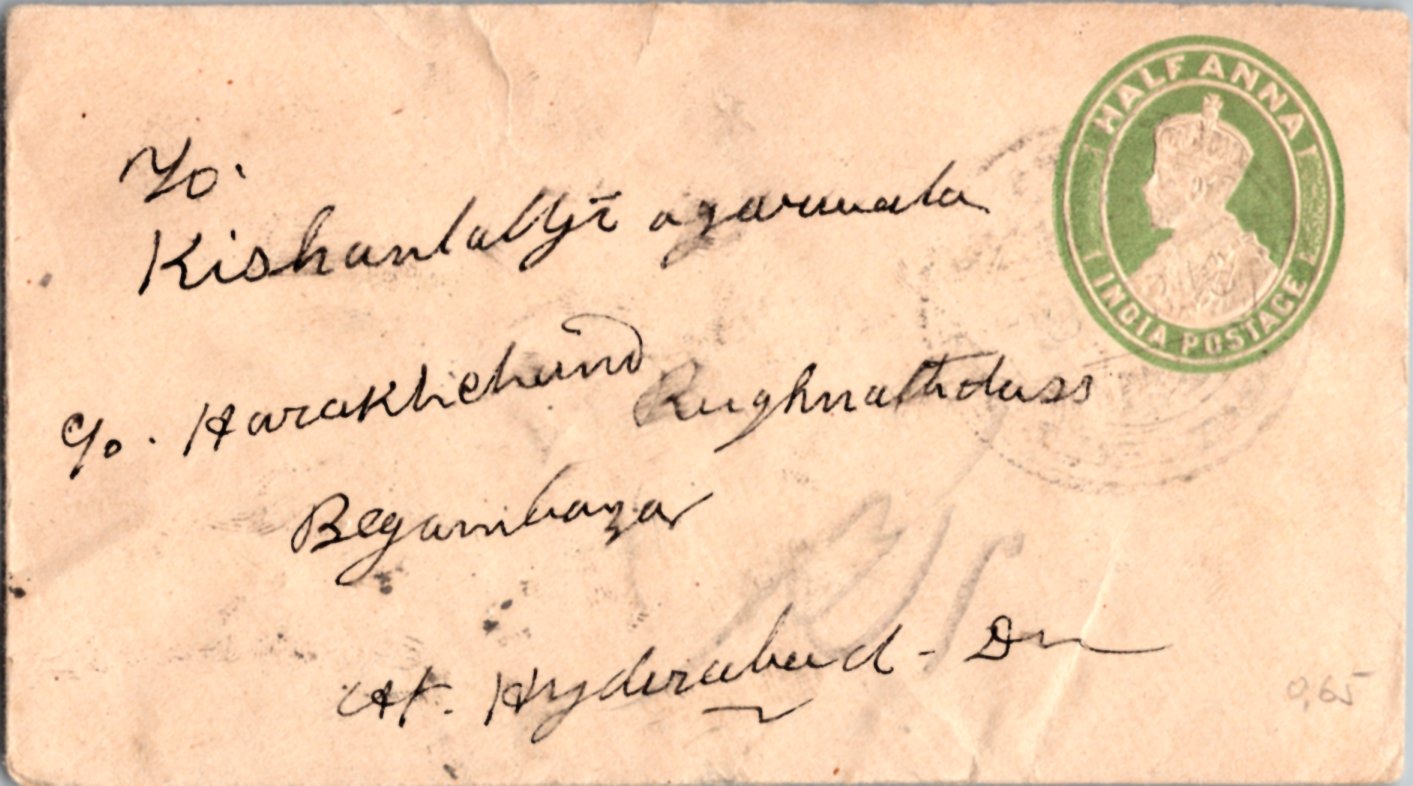 HALF ANNA
INDIA POSTAGE
To.
Kishanlallji agarwala
C/o. Harakhchand Rughnathdass
Begambazar
At. Hyderabad - Dn
0,65